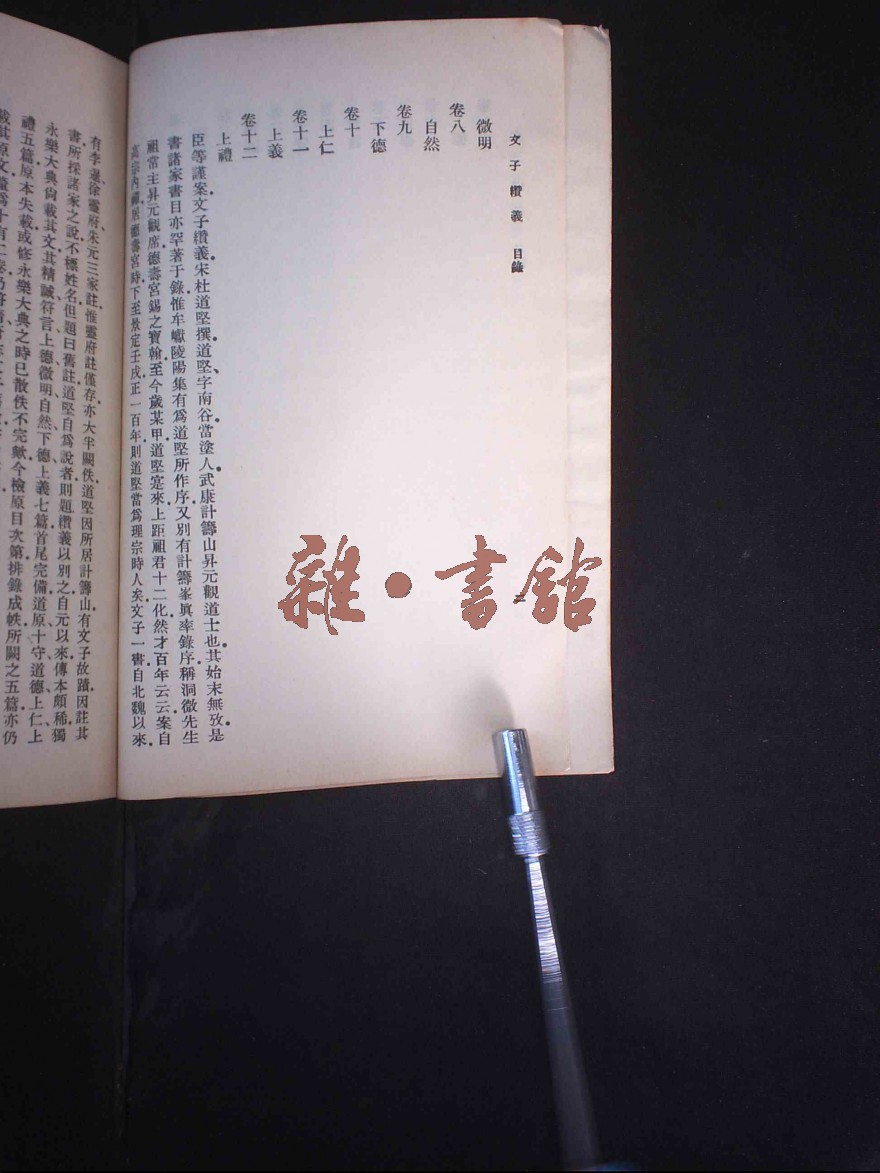 文子纘義 目錄
二
微明
卷八
自然
卷九
下德
卷十
上仁
卷十一
上義
卷十二
上禮
臣等謹案文子纘義宋杜道堅撰道堅、字南谷當塗人武康計籌山昇元觀道士也其始末無攷是
書諸家書目亦罕著于錄惟牟巘陵陽集有爲道堅所作序又別有計籌峯眞率錄序稱洞微先生
祖常主昇元觀席德壽宮錫之寶翰至今歲某甲道堅寔來上距祖君十二化然才百年云云案自
高宗內禪居德壽宮時下至景定壬戌正一百年則道堅當爲理宗時人矣文子一書自北魏以來
有李暹徐靈府朱元三家註惟靈府註僅存亦大半闕佚道堅因所居計籌山有文子故蹟因註其
書所採諸家之說不標姓名但題曰舊註道堅自爲說者則題纘義以別之自元以來傳本頗稀獨
永樂大典尙載其文其精誠、符言、上德、微明、自然、下德、上義七篇首尾完備道原十守道德上仁上
禮五篇原本失載或修永樂大典之時已散佚不完歟今檢原目次第排錄成帙所闕之五篇亦仍
雜·書館